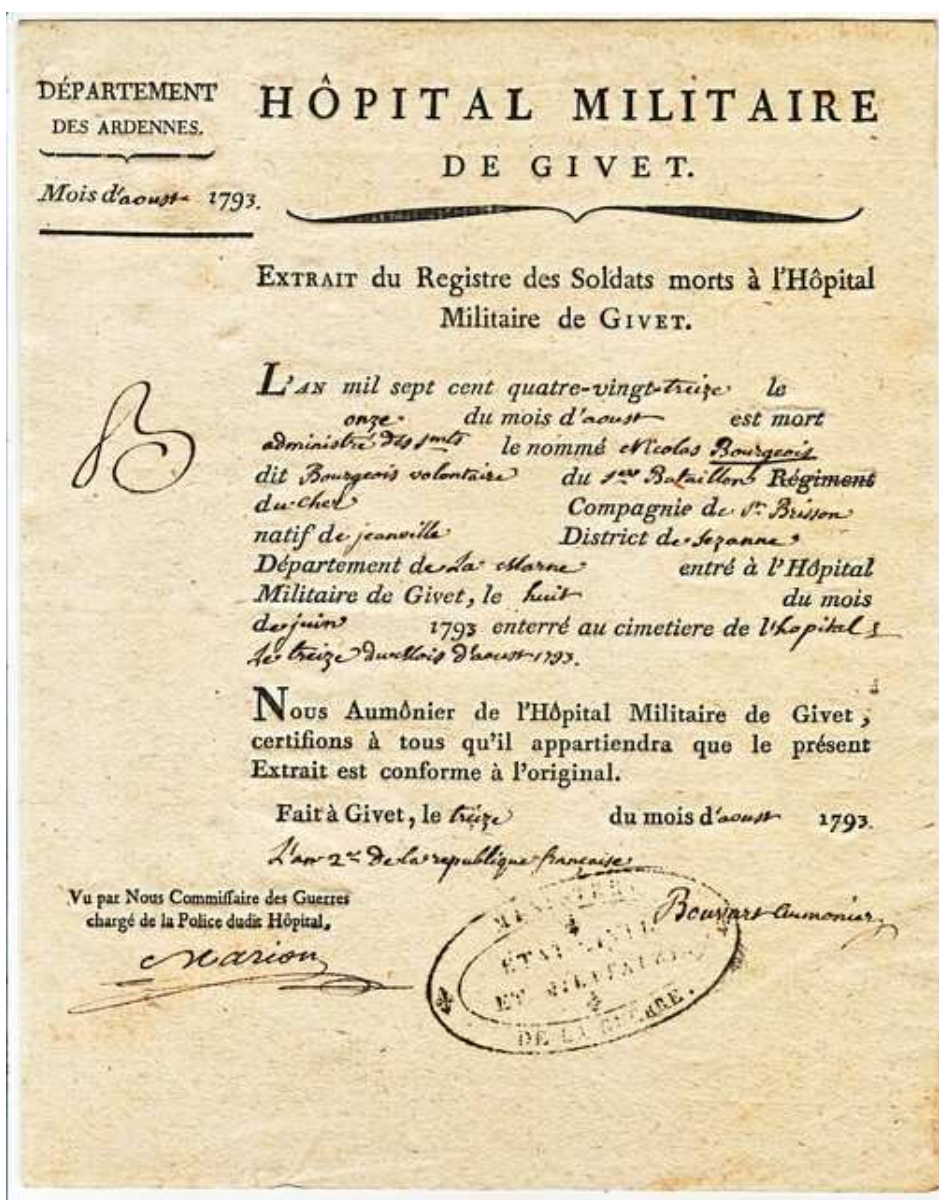 DÉPARTEMENT
DES ARDENNES.
Mois d'aoust 1793.
HÔPITAL MILITAIRE
DE GIVET.
EXTRAIT du Registre des Soldats morts à l'Hôpital
Militaire de GIVET.
B
L'AN mil sept cent quatre-vingt-treize le
onze du mois d'aoust est mort
administré des smts le nommé Nicolas Bourgeois
dit Bourgeois volontaire du 1er Bataillon Régiment
du Cher Compagnie de St. Brisson
natif de jeanville District de Sezanne
Département de La Marne entré à l'Hôpital
Militaire de Givet, le huit du mois
de juin 1793 enterré au cimetiere de l'hopital
Le treize du Mois d'aoust 1793.
Nous Aumônier de l'Hôpital Militaire de Givet,
certifions à tous qu'il appartiendra que le présent
Extrait est conforme à l'original.
Fait à Givet, le treize du mois d'aoust 1793.
L'an 2e De la republique francaise
Vu par Nous Commissaire des Guerres
chargé de la Police dudit Hôpital,
Marion
Aumonier
MINISTERE
ÉTAT CIVIL
ET MILITAIRE
DE LA GUERRE.